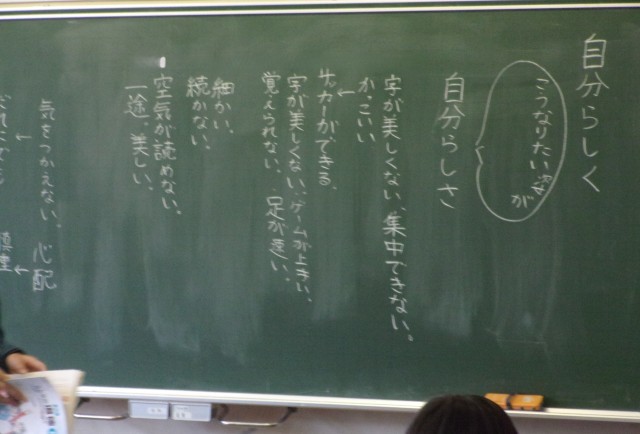 自分らしく
こうなりたい姿
が
自分らしさ
字が美しくない、集中できない。
かっこいい
サッカーができる、
字が美しくない、ゲームが上手い、
覚えられない、足が速い、
細かい、
続かない、
空気が読めない。
一途、美しい、
気をつかえない。心配